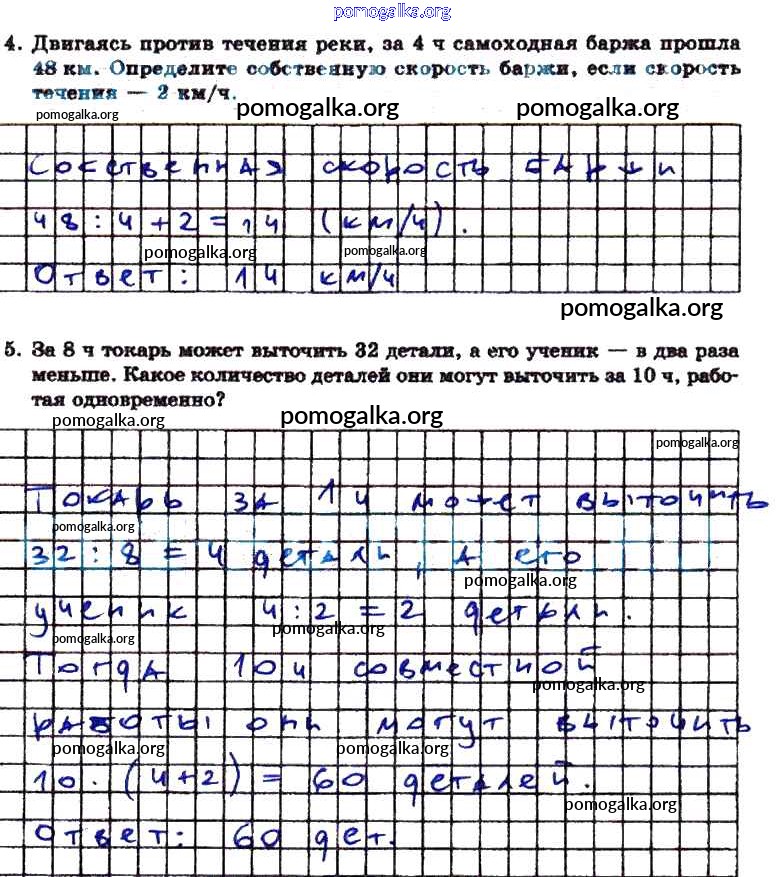 pomogalka.org
4. Двигаясь против течения реки, за 4 ч самоходная баржа прошла
48 км. Определите собственную скорость баржи, если скорость
течения — 2 км/ч.
pomogalka.org pomogalka.org pomogalka.org
Собственная скорость баржи
48 : 4 + 2 = 14 (км/ч).
pomogalka.org pomogalka.org
Ответ: 14 км/ч
pomogalka.org
5. За 8 ч токарь может выточить 32 детали, а его ученик — в два раза
меньше. Какое количество деталей они могут выточить за 10 ч, рабо-
тая одновременно?
pomogalka.org pomogalka.org
pomogalka.org
Токарь за 1 ч может выточить
pomogalka.org
32 : 8 = 4 детали, а его
pomogalka.org
ученик 4 : 2 = 2 детали.
pomogalka.org pomogalka.org
Тогда 10 ч совместной
pomogalka.org
работы они могут выточить
pomogalka.org pomogalka.org
10 · (4+2) = 60 деталей.
pomogalka.org
Ответ: 60 дет.